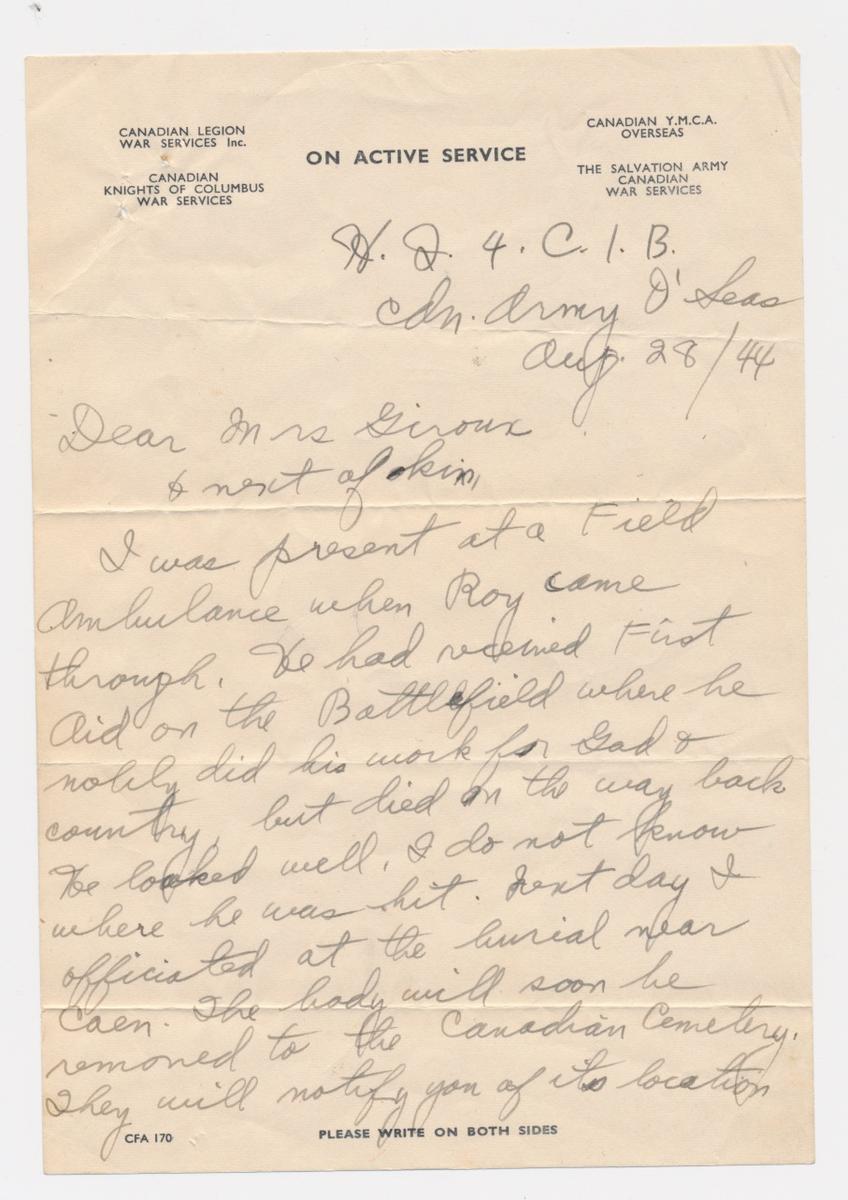 CANADIAN LEGION
WAR SERVICES Inc.
CANADIAN
KNIGHTS OF COLUMBUS
WAR SERVICES
ON ACTIVE SERVICE
CANADIAN Y.M.C.A.
OVERSEAS
THE SALVATION ARMY
CANADIAN
WAR SERVICES
H. Q. 4. C. I. B.
Cdn. Army O'Seas
Aug. 28/44
Dear Mrs Giroux
& next of kin,
I was present at a Field
Ambulance when Roy came
through. He had received First
Aid on the Battlefield where he
nobly did his work for God &
country, but died on the way back
He looked well. I do not know
where he was hit. Next day I
officiated at the burial near
Caen. The body will soon be
removed to the Canadian Cemetery.
They will notify you of its location
CFA 170
PLEASE WRITE ON BOTH SIDES